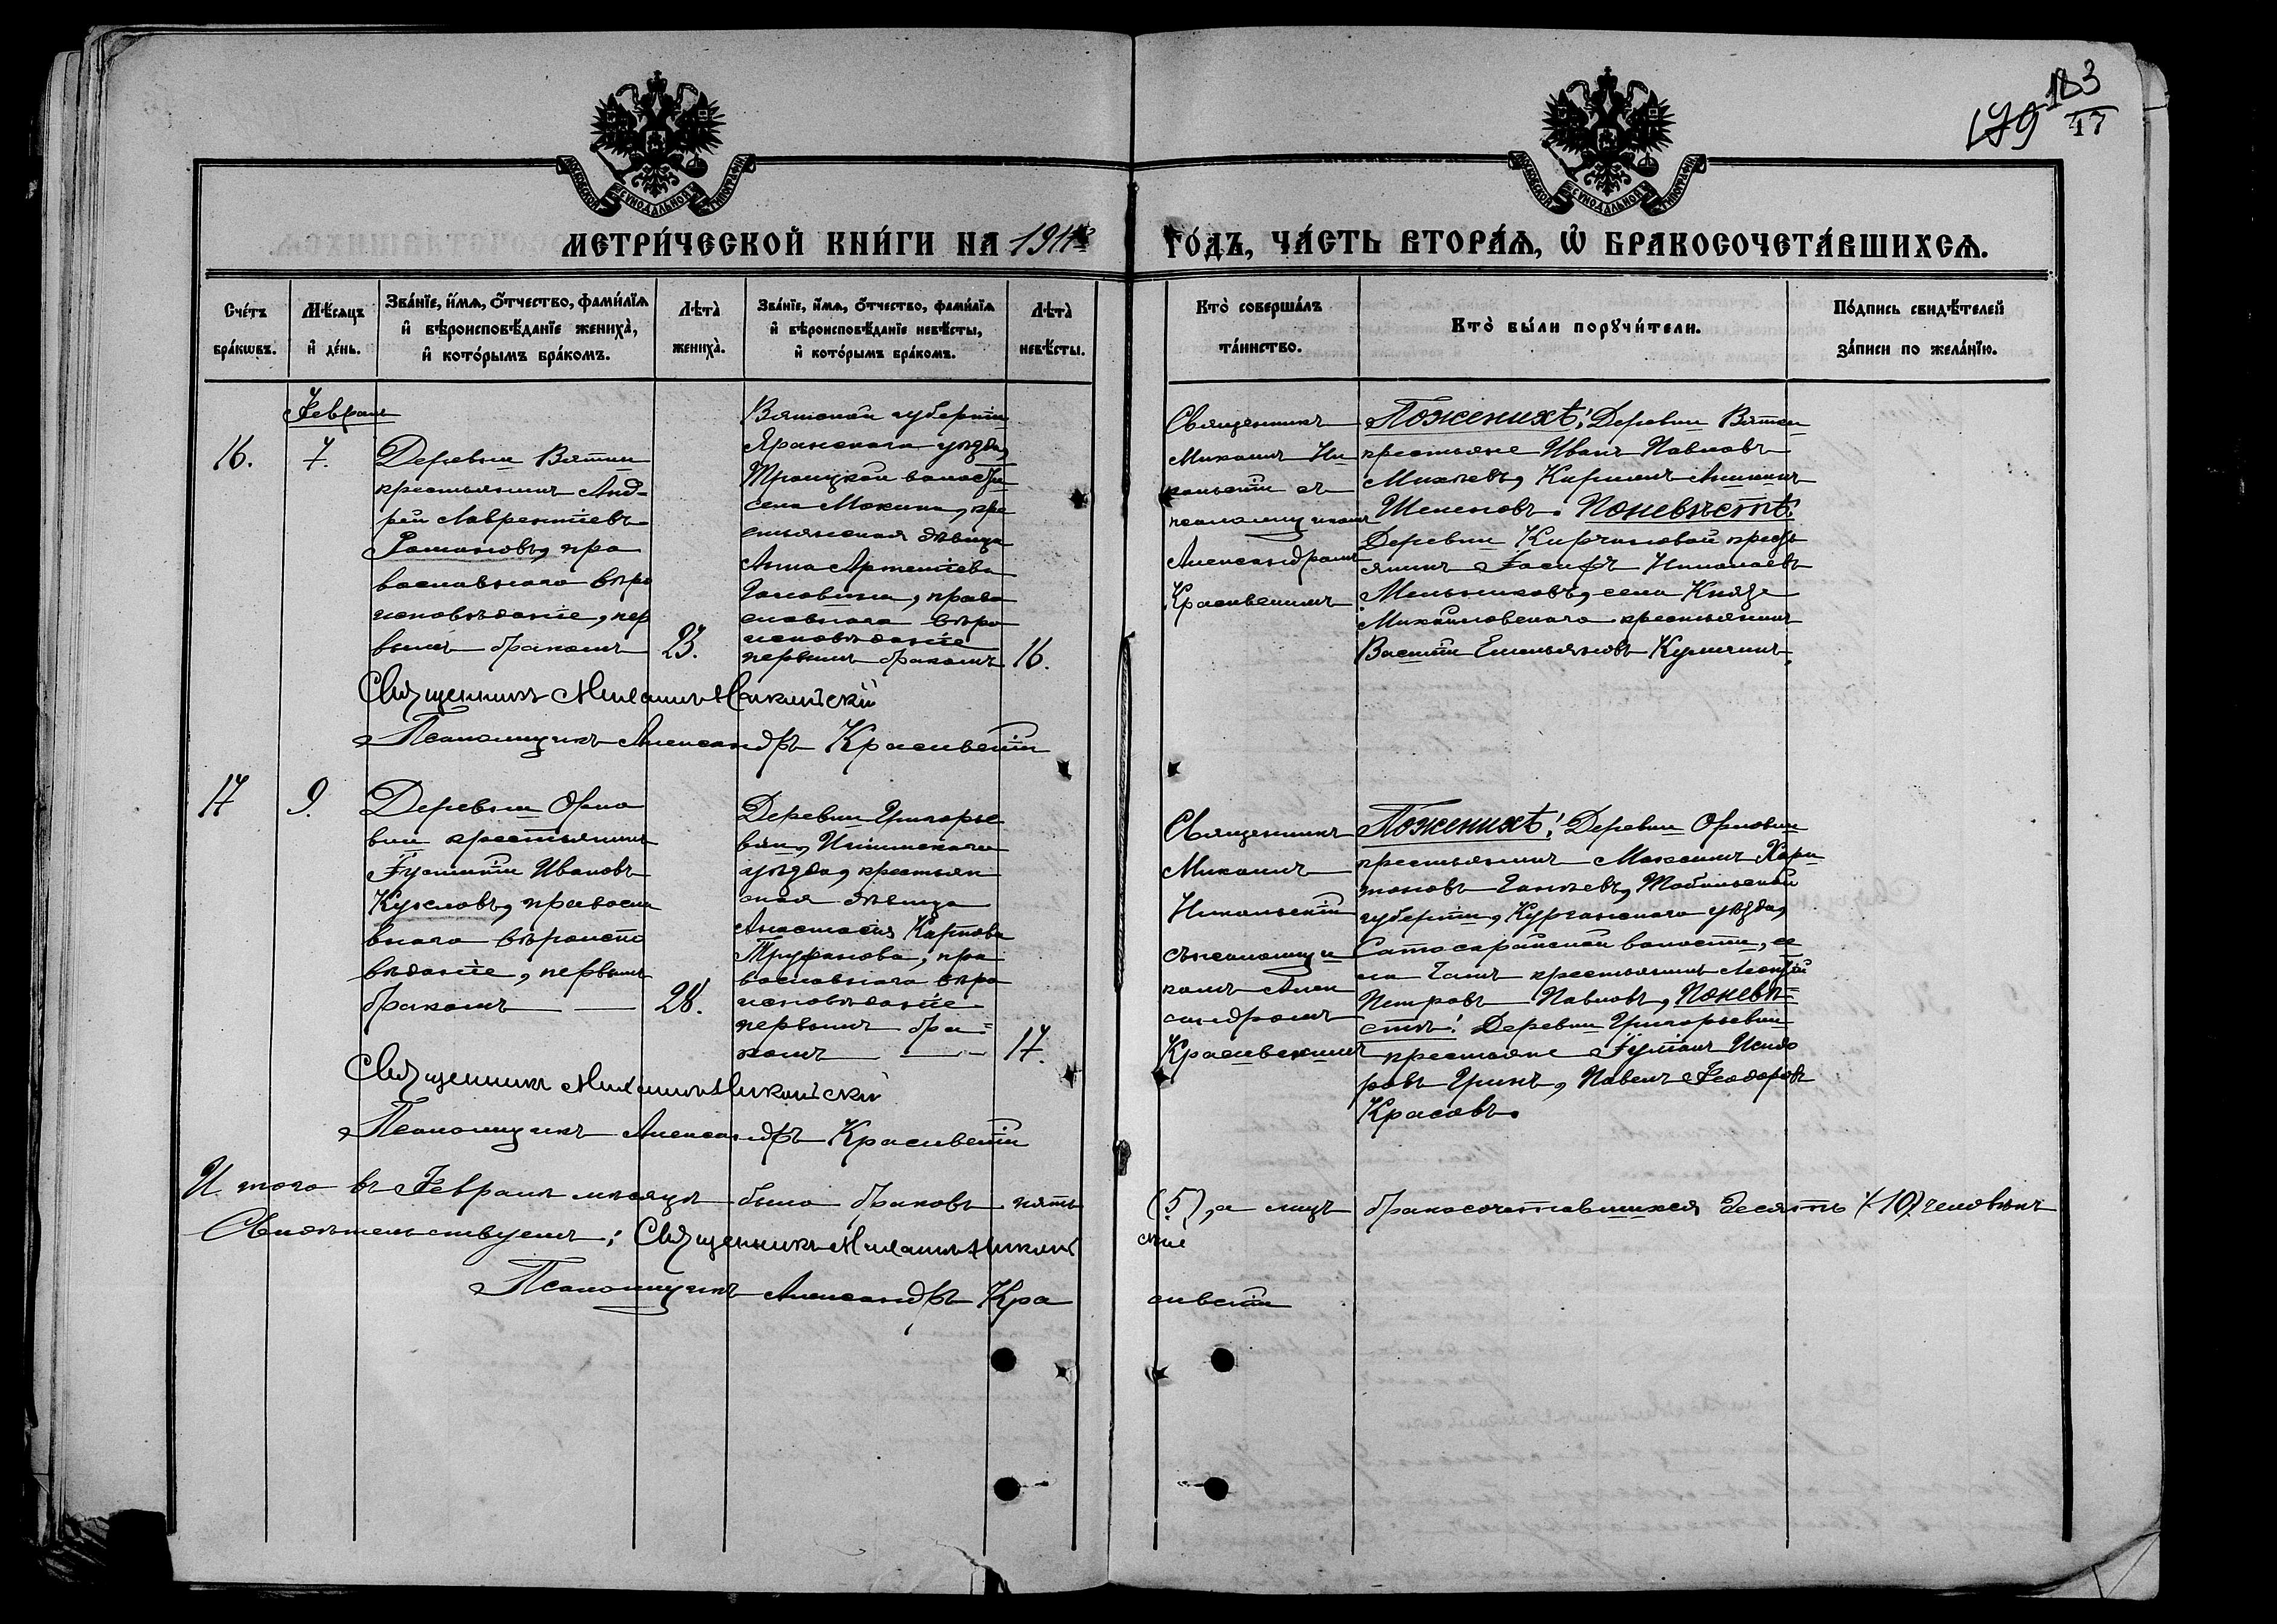 183
179
47
МОСКОВСКОЙ СѴНОДАЛЬНОЙ ТИПОГРАФІИ
МОСКОВСКОЙ СѴНОДАЛЬНОЙ ТИПОГРАФІИ
МЕТРИ́ЧЕСКОЙ КНИ́ГИ НА 1911й ГО́ДЪ, ЧА́СТЬ ВТОРА́Ѧ, Ѿ БРАКОСОЧЕТА́ВШИХСѦ.
Сче́тъ
бра́кѡвъ.
Мѣ́сѧцъ
и҆ де́нь.
Зва́нїе, и҆́мѧ, ѻ҆́тчество, фами́лїѧ
и҆ вѣроисповѣ́данїе жениха̀,
и҆ кото́рымъ бра́комъ.
Лѣта̀
жениха̀.
Зва́нїе, и҆́мѧ, ѻ҆́тчество, фами́лїѧ
и҆ вѣроисповѣ́данїе невѣ́сты,
и҆ кото́рымъ бра́комъ.
Лѣта̀
невѣ́сты.
Кто̀ соверша́лъ
та́инство.
Кто̀ бы́ли порꙋчи́тели.
По́дпись свидѣ́телей
за́писи по жела́нїю.
Февраль
16.
7.
Деревни Вятки
крестьянинъ Анд-
рей Лаврентіевъ
Романовъ, пра
вославнаго вѣро
исповѣданіе, пер
вымъ бракомъ
23.
Вятской губерніи
Яранскаго уѣзда,
Троицкой волости
села Мокина, кре
стьянская дѣвица
Анна Артеміева
Головина, право
славнаго вѣро
исповѣданіе
первымъ бракомъ
16.
Священникъ
Михаилъ Ни
кольскій съ
псаломщикомъ
Александромъ
Красивскимъ
Поженихѣ: Деревни Вятки
крестьяне Иванъ Павловъ
Михѣевъ, Кириллъ
Шеленовъ. Поневѣстѣ:
Деревни Кирчиновой кресть
янинъ Іосифъ Николаевъ
Мельниковъ, села Князе
Михайловскаго крестьянинъ
Василій Емельяновъ
Священникъ Михаилъ Никольскій
Псаломщикъ Александръ Красивскій
17
9.
Деревни Орло
вки крестьянинъ
Іустинъ Ивановъ
Кужловъ, правосла
внаго вѣроиспо
вѣданіе, первымъ
бракомъ
28.
Деревни Григорье
вки, Ишимскаго
уѣзда, крестьян
ская дѣвица
Анастасія Карпова
Труфанова, пра
вославнаго вѣро
исповѣданіе
первымъ бра=
комъ
17.
Священникъ
Михаилъ
Никольскій
съпсаломщи
комъ Алек
сандромъ
Красивскимъ
Поженихѣ: Деревни Орловки
крестьянинъ Максимъ Хари
тоновъ Ганѣевъ, Тобольской
губерніи, Курганскаго уѣзда,
волости, се
ла крестьянинъ
Петровъ Павловъ, Поневѣ=
стѣ: Деревни Григорьевки
крестьяне Іуліанъ Исидо
ровъ Гринъ, Павелъ Феодоровъ
Красовъ.
Священникъ Михаилъ Никольскій
Псаломщикъ Александръ Красивскій
И того въ Февралѣ мѣсяцѣ было браковъ пять (5), а лицъ бракосочетавшихся десять (10) человѣкъ
Свидѣтельствуемъ: Священникъ Михаилъ Николь
скій
Псаломщикъ Александръ Кра
сивскій